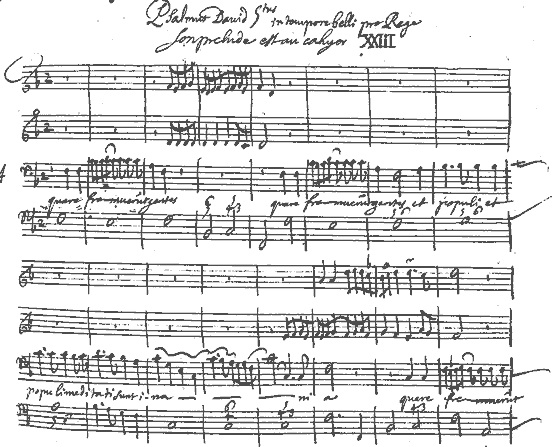 Psalmus David 5tus in tempore belli pro Rege
son prelude est au cahyer XXIII
quare fremuerunt gentes quare fremuerunt gentes et populi et
populi meditati sunt ina - - - ni a quare fremuerunt